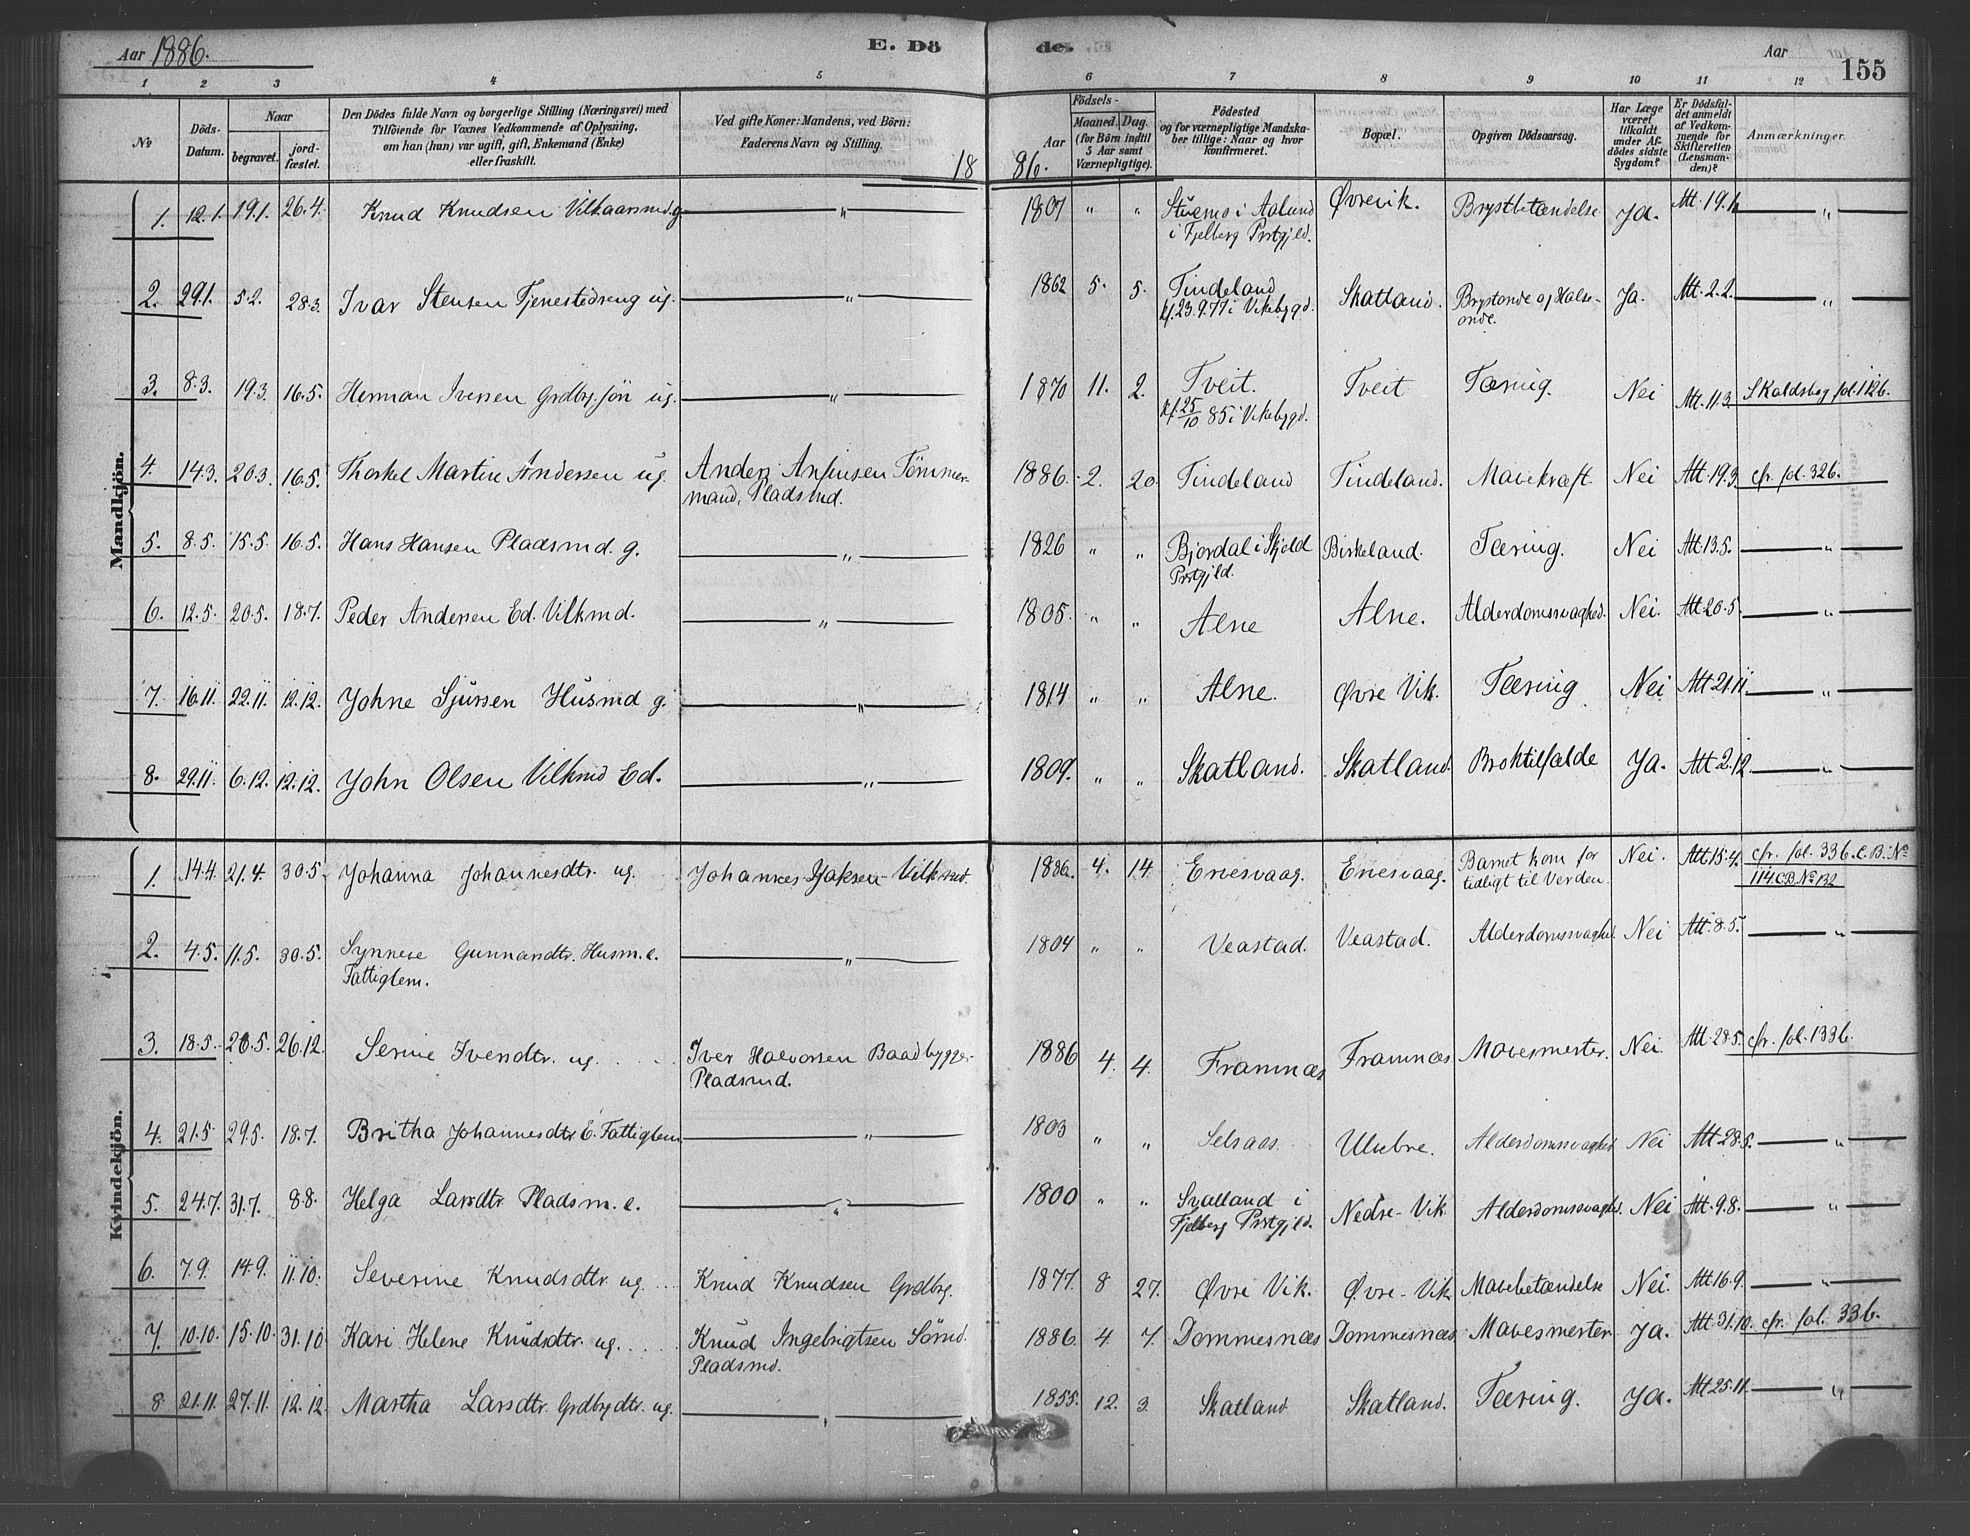 Aar 1886. E. Dö de. Aar 155
1 2 3 4 5 6 7 8 9 10 11 12
No Döds-Datum. Naar begravet. jord-fæstet. Den Dödes fulde Navn og borgerlige Stilling (Næringsvei) med Tilföiende for Voxnes Vedkommende af Oplysning, om han (hun) var ugift, gift, Enkemand (Enke) eller fraskilt. Ved gifte Koner: Mandens, ved Börn: Faderens Navn og Stilling. Aar Födsels- Maaned. Dag. (for Börn indtil 5 Aar samt Værnepligtige). Födested og for værnepligtige Mandskaber tillige: Naar og hvor konfirmeret. Bopæl. Opgiven Dödsaarsag. Har Læge været tilkaldt under Afdödes sidste Sygdom? Er Dödsfaldet anmeldt af Vedkommende for Skifteretten (Lensmanden)? Anmærkninger.
18 86.
Mandkjön.
1. 12.1. 19.1. 26.4. Knud Knudsen Vilkaarsmd. g. — " — 1807 " " i Aalund Øvrevik. Brystbetændelse Ja. Att. 19.1. — " —
i Fjelberg Prstgjld.
2. 29.1. 5.2. 28.3. Ivar Stensen Tjenestedreng ug. — " — 1862 5. 5. Tindeland Skatland. Brystonde og Halse- Ja. Att. 2.2. — " —
kf. 23.9.77 i Vikebygd. onde.
3. 8.3. 19.3. 16.5. Herman Iversen Grdbr. sön ug. — " — 1870 11. 2. Tveit. Tveit Tæring. Nei Att. 11.3. Skoldsbog fol. 112 6.
kf. 25/10 85 i Vikebygd.
4. 14.3. 20.3. 16.5. Thorkel Martin Andersen ug. Anders Anfinsen Tömmer- 1886. 2. 20. Tindeland Tindeland. Mavekræft. Nei Att. 19.3. cfr. fol. 32 6.
mand, Pladsmd.
5. 8.5. 15.5. 16.5. Hans Hansen Pladsmd. g. — " — 1826 " " Bjordal i Skjold Birkeland. Tæring. Nei Att. 13.5. — " —
Prstgjld.
6. 12.5. 20.5. 18.7. Peder Andersen Ed. Vilkmd. — " — 1805. " " Alne Alne. Alderdomssvaghed. Nei. Att. 20.5. — " —
7. 16.11. 22.11. 12.12. Johne Sjursen Husmd g. — " — 1814 " " Alne. Øvre Vik. Tæring Nei. Att. 21.11. — " —
8. 29.11. 6.12. 12.12. John Olsen Vilkmd Ed. — " — 1809. " " Skatland. Skatland. Broktilfælde Ja. Att. 2.12. — " —
Kvindekjön.
1. 14.4. 21.4. 30.5. Johanna Johannesdtr. ug. Johannes Jaksen Vilkmd. 1886. 4. 14. Eriesvaag. Eriesvaag. Barnet kom for Nei. Att. 15.4. cfr. fol. 33 6. C.B. No
tidligt til Verden. 114. C.B. No 132
2. 4.5. 11.5. 30.5. Synneve Gunnarsdtr. Husm. e. — " — 1804 " " Veastad. Veastad. Alderdomssvaghed. Nei Att. 8.5. — " —
Fattiglem.
3. 18.5. 26.5. 26.12. Serine Iversdtr. ug. Iver Halvorsen Baadbygger 1886 4. 4. Framnæs Framnæs Mavesmerter. Nei. Att. 28.5. cfr. fol. 133 6.
Pladsmd.
4. 21.5 29.5. 18.7. Britha Johannesdtr. E. Fattiglem — " — 1803 " " Selsaas. Ulvebre. Alderdomssvaghed Nei Att. 28.5. — " —
5. 24.7. 31.7. 8.8. Helga Larsdtr. Pladsm. e. — " — 1800 " " Svalland i Nedre-Vik Alderdomssvaghed. Nei Att. 9.8. — " —
Fjelberg Prstgjld.
6. 7.9. 14.9. 11.10. Severine Knudsdtr. ug. Knud Knudsen Grdbrg. 1877. 8 27. Øvre Vik. Øvre-Vik Mavebetændelse Nei. Att. 16.9. — " —
7. 10.10. 15.10. 31.10. Kari Helene Knudsdtr. ug. Knud Ingebrigtsen Sömd. 1886. 4 7. Dommesnæs Dommesnæs Mavesmerter Ja. Att. 31.10. cfr. fol. 33 6.
Pladsmd.
8 21.11. 27.11. 12.12. Martha Larsdtr. Grdbrgdtr. ug. — " — 1855. 12. 3. Skatland Skatland. Tæring. Ja. Att. 25.11. — " —